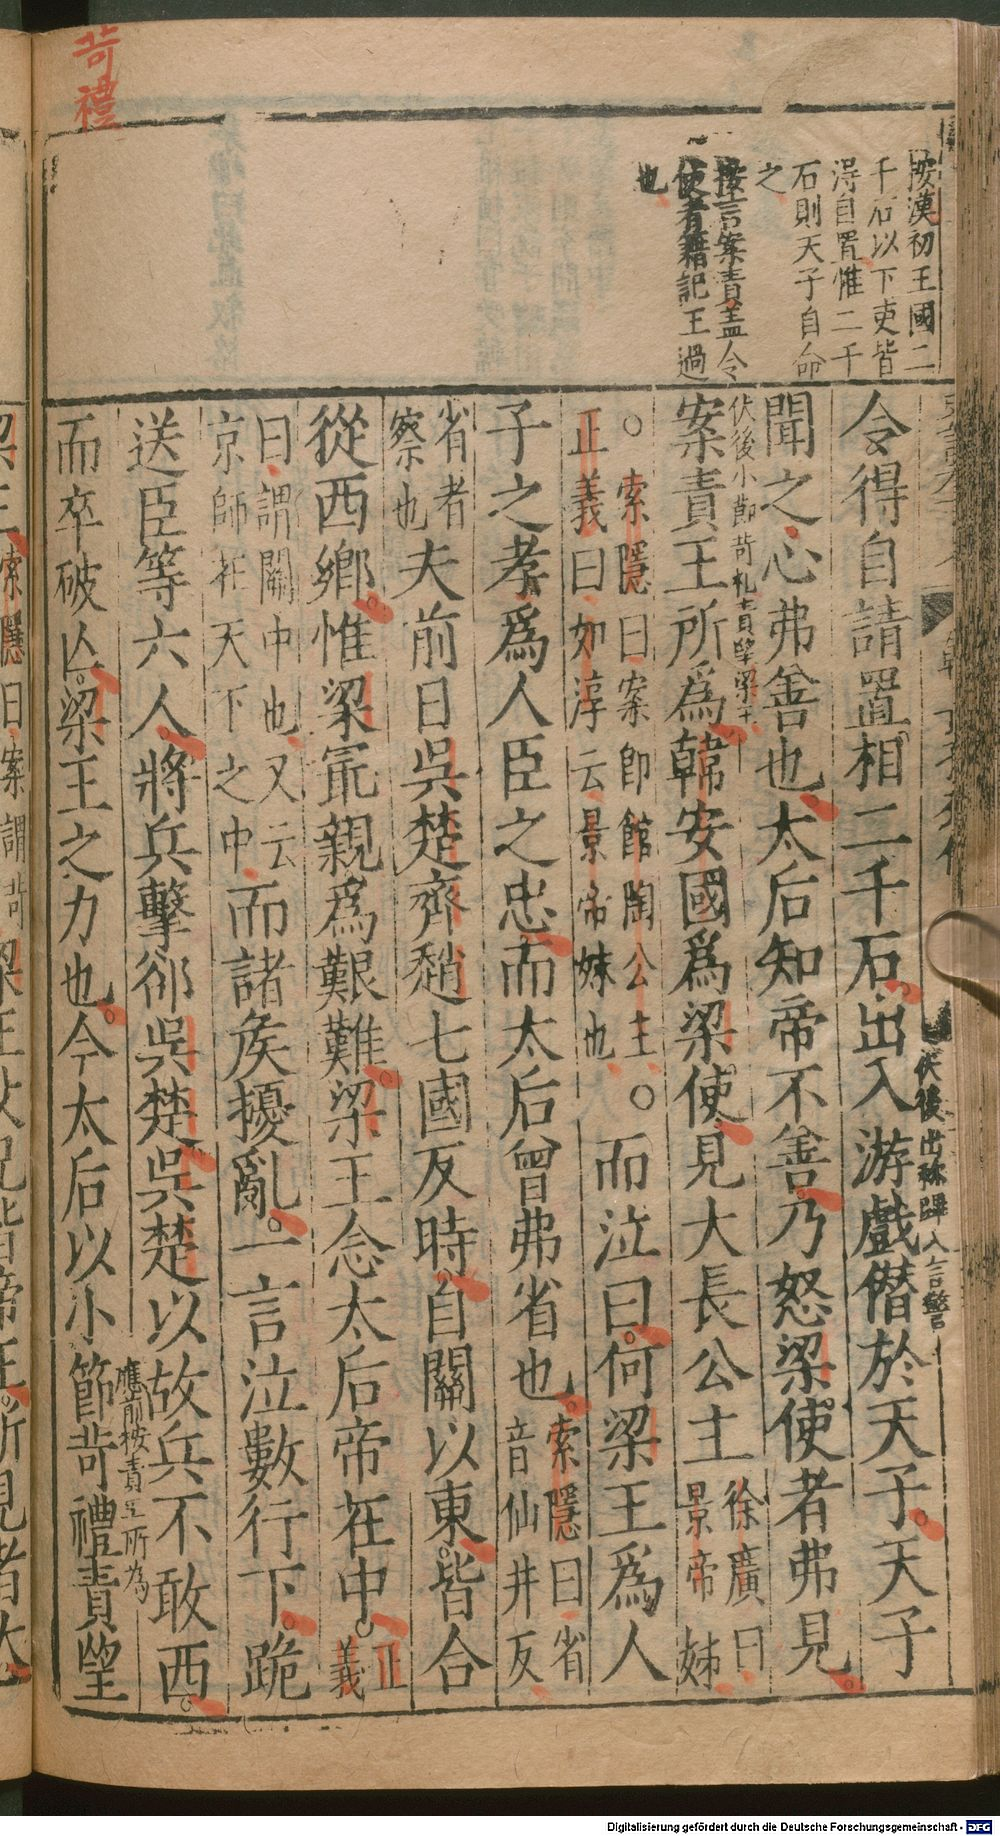 苛禮
按漢初王國二
千石以下吏皆
得自置惟二千
石則天子自命
之
按言案責蓋令
使者籍記王過
也
伏後出稱蹕入言警
令得自請置相二千石出入游戲僭於天子天子
聞之心弗善也太后知帝不善乃怒梁使者弗見
伏後小節苛礼責望梁王
案責王所爲韓安國爲梁使見大長公主徐廣曰
景帝姊
○索隱曰案即館陶公主○
正義曰如淳云景帝妹也
而泣曰何梁王爲人
子之孝爲人臣之忠而太后曾弗省也索隱曰省
音仙井反
省者
察也
夫前日吳楚齊趙七國反時自關以東皆合
從西鄉惟梁最親爲艱難梁王念太后帝在中正
義
曰謂關中也又云
京師在天下之中
而諸侯擾亂一言泣數行下跪
送臣等六人將兵擊郤吳楚吳楚以故兵不敢西
應前按責王所為
而卒破亾梁王之力也今太后以小節苛禮責望
Digitalisierung gefördert durch die Deutsche Forschungsgemeinschaft - DFG